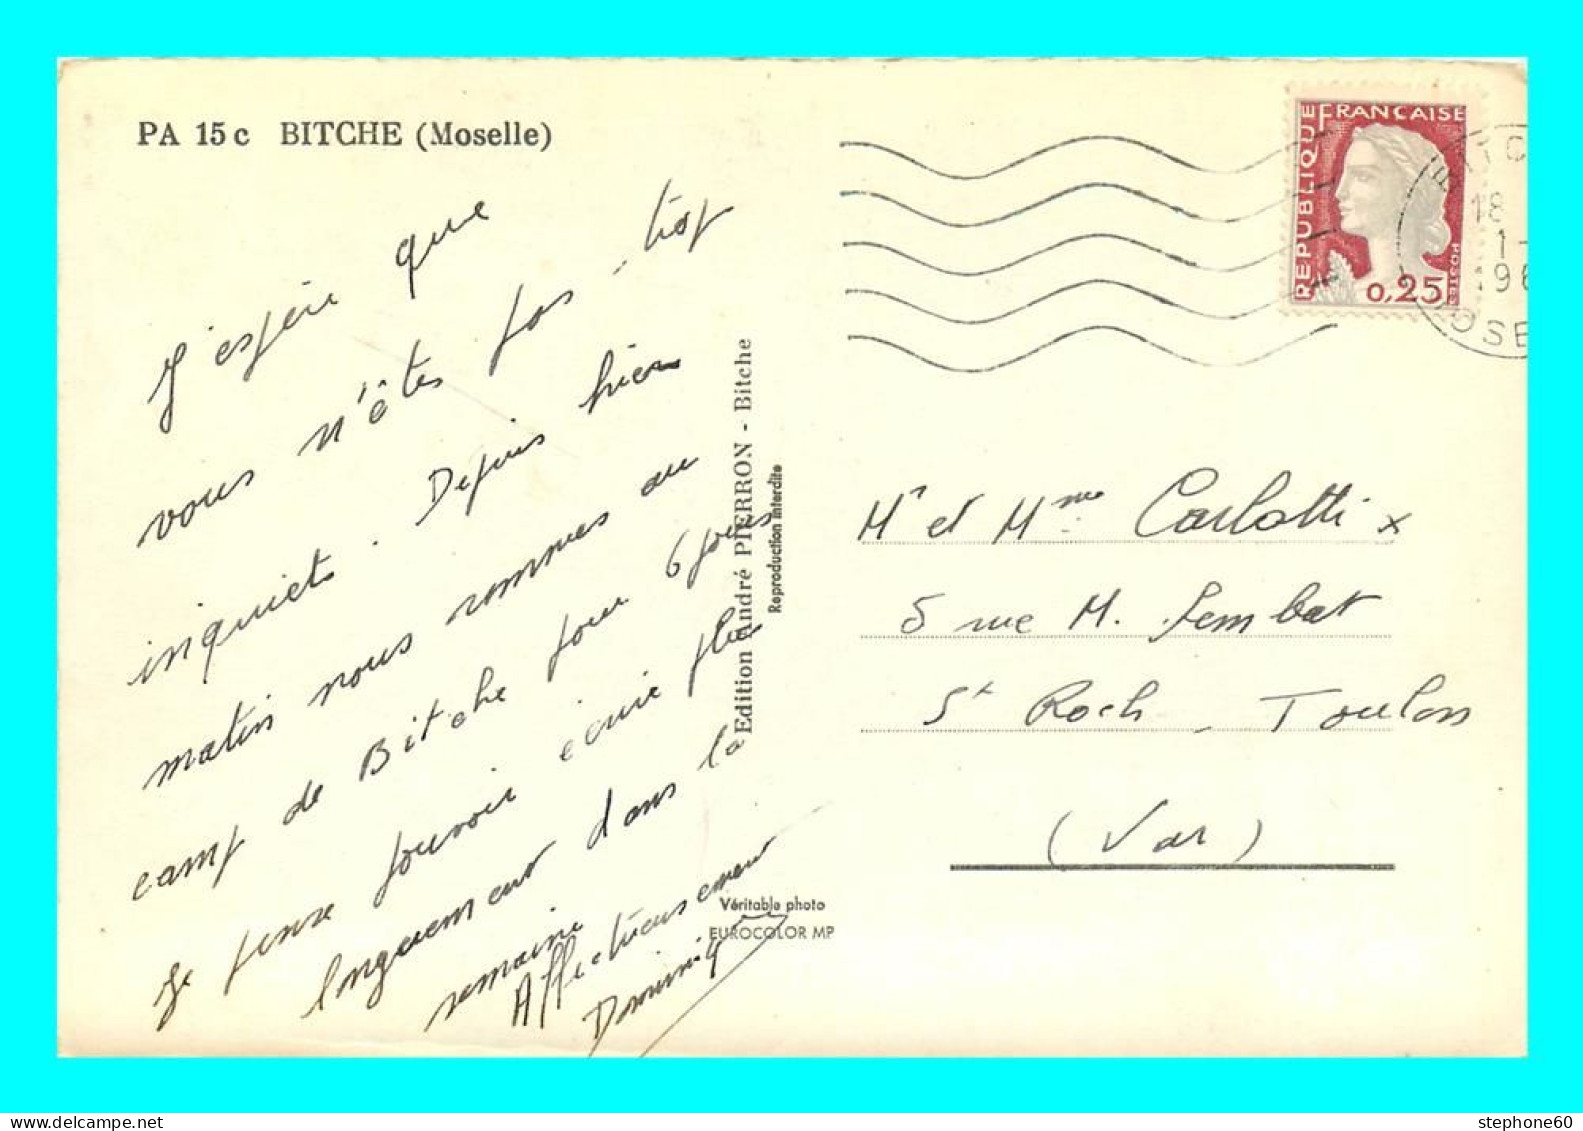 PA 15c BITCHE (Moselle)
J'espère que
vous n'êtes pas trop
inquiets. Depuis hier
matin nous sommes au
camp de Bitche pour 6 jours
Je pense pouvoir écrire plus
longuement dans la
semaine
Affectueusement
Dominique
Edition André PIERRON - Bitche
Reproduction interdite
Véritable photo
EUROCOLOR MP
REPUBLIQUE FRANÇAISE
POSTES
0,25
18
1-
196
OSE
Mr et Mme Carlotti
5 rue M. Sembat
St Roch - Toulon
(Var)
stephone60